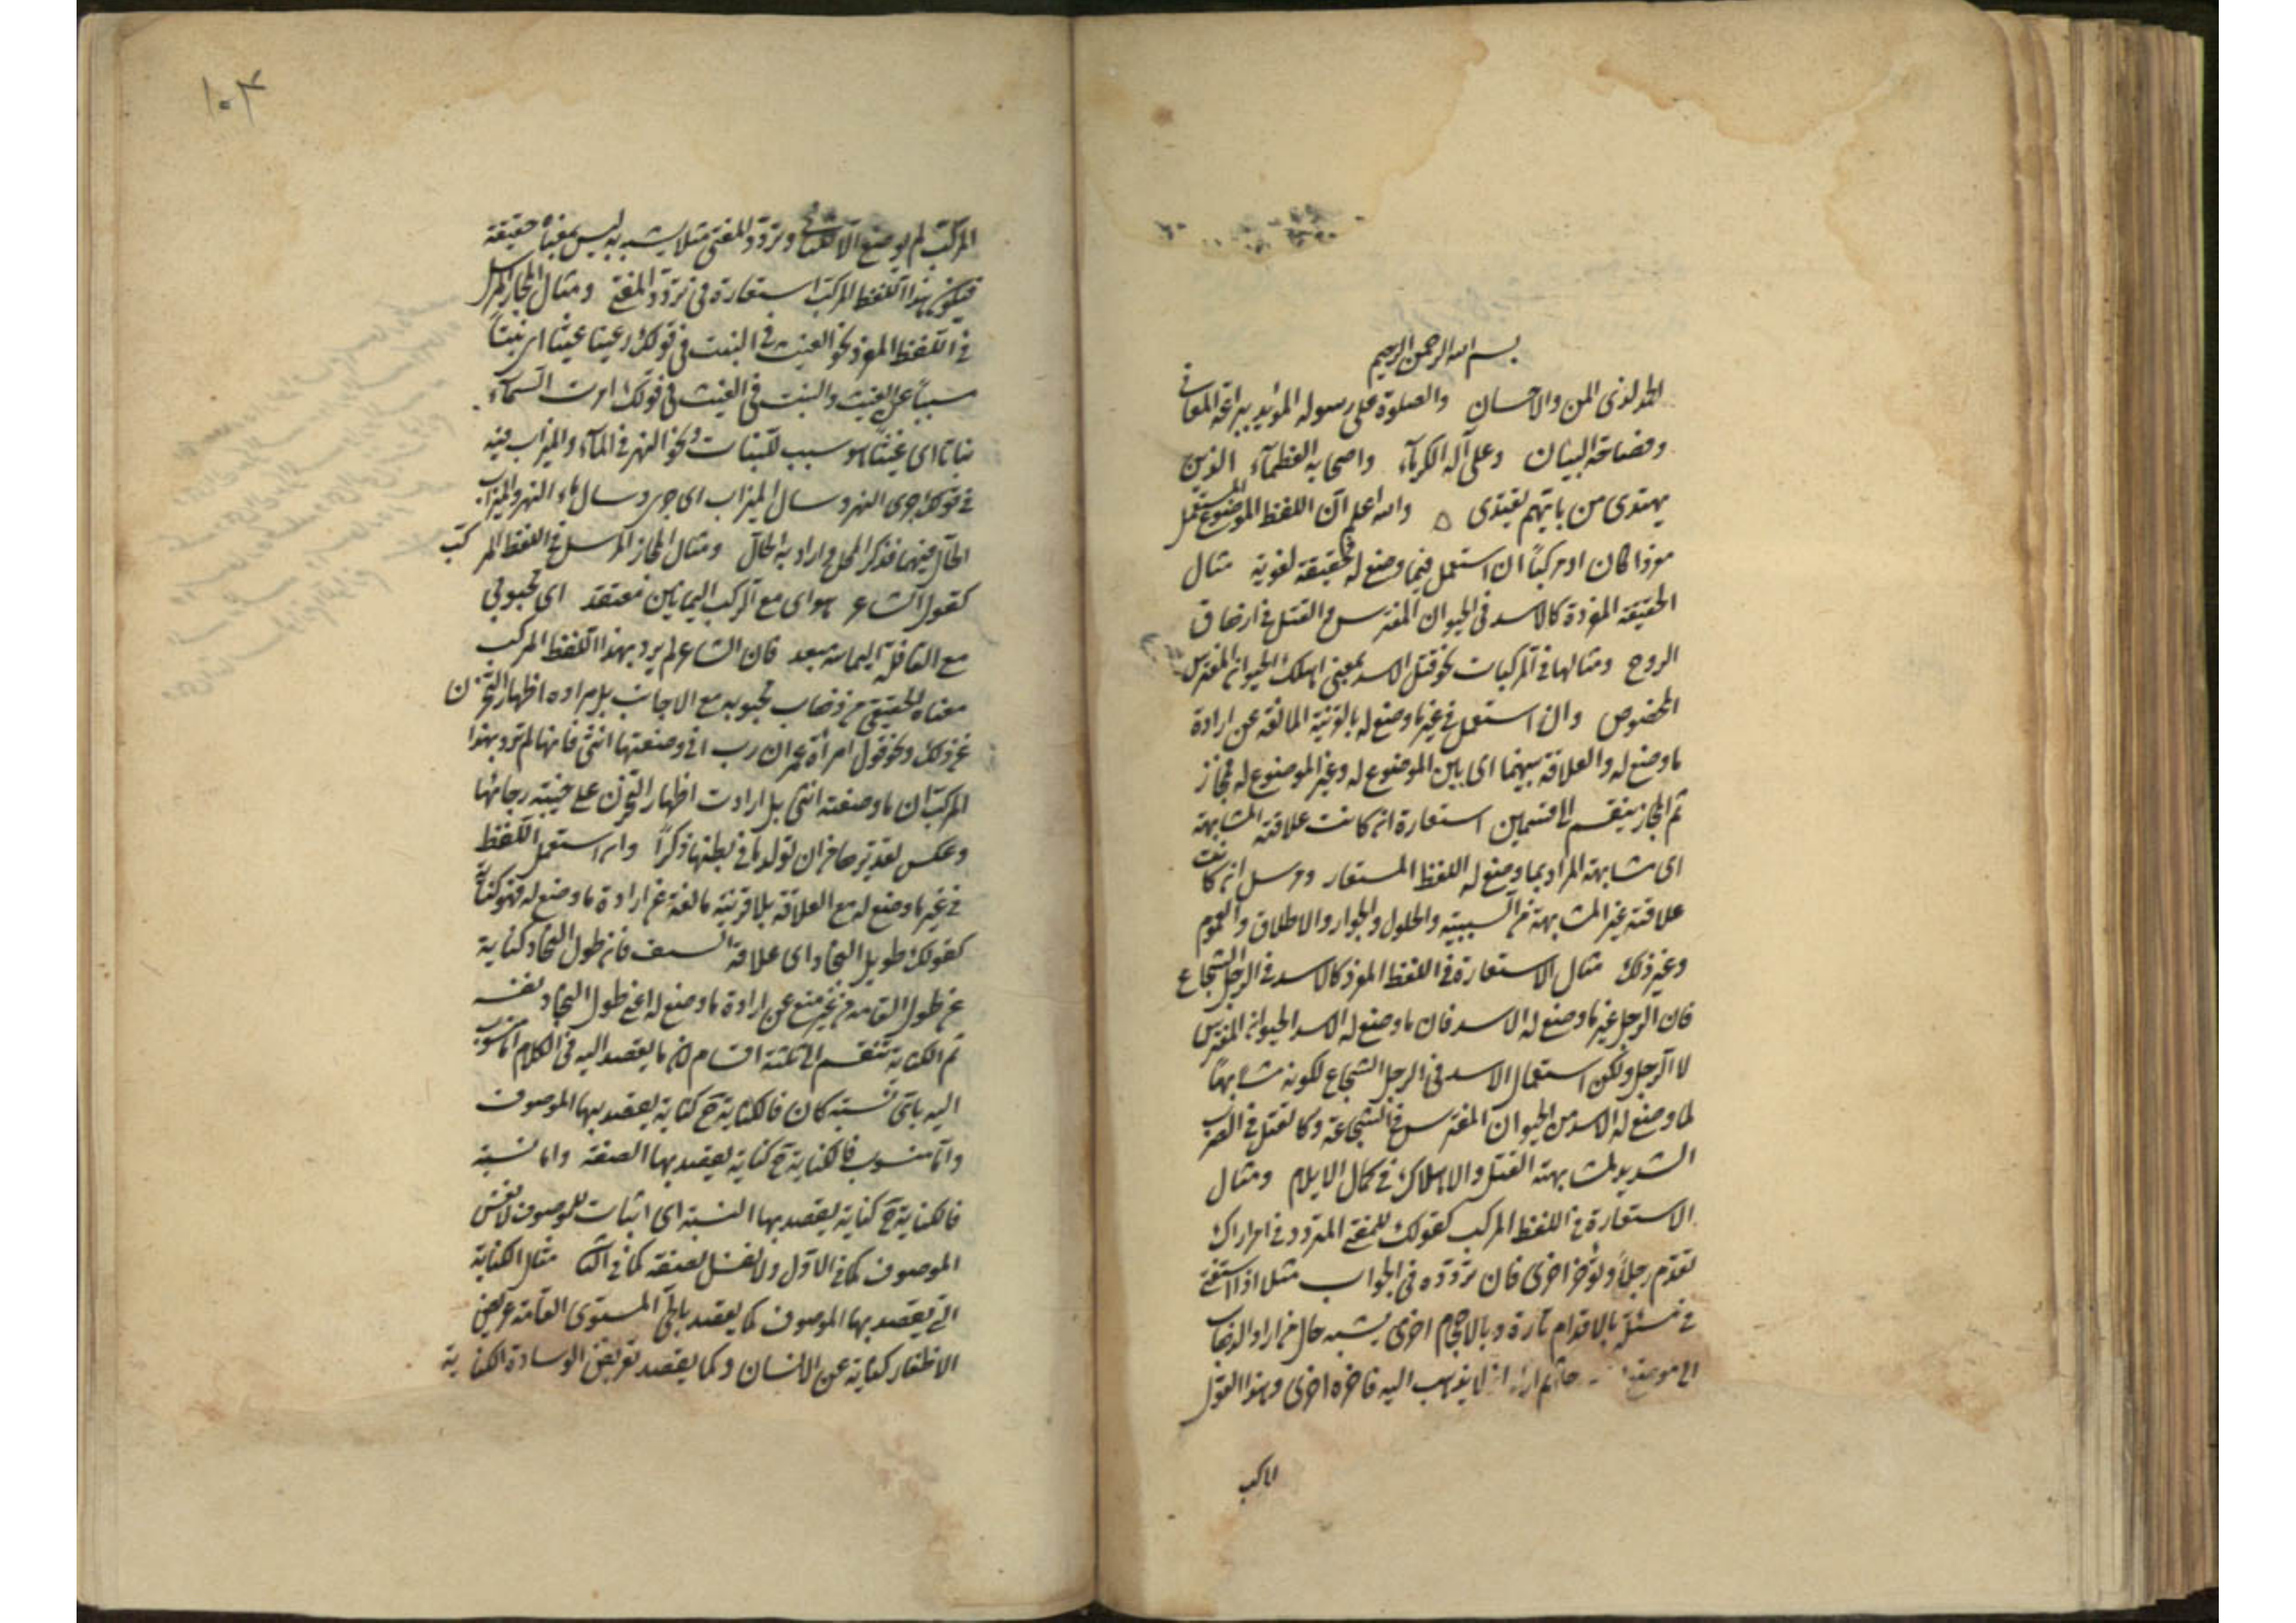 بسم الله الرحمن الرحيم
الحمد لذى المن والاحسان والصلوة على رسوله المؤيد ببراعة المعانى
وفصاحة البيان وعلى آله الكرمآء واصحابه العظمآء الذين
يهتدى من بايهم يقتدى ه والله اعلم ان اللفظ الموضوع المستعمل
مفردا كان او مركباً ان استعمل فيما وضع له فحقيقة لغوية مثال
الحقيقة المفردة كالاسد فى الحيوان المفترس والقتل فى ازهاق
الروح ومثالها فى المركبات نحو قتل الاسد بمعنى اهلك الحيوان المفترس
المخصوص وان استعمل فى غير ما وضع له بالقرينة المانعة عن ارادة
ما وضع له والعلاقة بينهما اى بين الموضوع له وغير الموضوع له مجاز
ثم المجاز ينقسم الى قسمين استعارة ان كانت علاقته المشابهة
اى مشابهة المراد بما وضع له اللفظ المستعار ومرسل ان كانت
علاقته غير المشابهة من السببية والحلول والجوار والاطلاق والعموم
وغير ذلك مثال الاستعارة فى اللفظ المفرد كالاسد فى الرجل الشجاع
فان الرجل غير ما وضع له الاسد فان ما وضع له الاسد الحيوان المفترس
لا الرجل ولكن استعمال الاسد فى الرجل الشجاع لكونه مشابهاً
لما وضع له الاسد من الحيوان المفترس فى الشجاعة وكالقتل فى الضرب
الشديد لمشابهة القتل والاهلاك فى كمال الايلام ومثال
الاستعارة فى اللفظ المركب كقولك للمفتى المتردد فى امر اراك
تقدم رجلاً وتؤخر اخرى فان تردده فى الجواب مثل اذا استفتى
فى مسئلة بالاقدام تارة وبالاحجام اخرى يشبه حال من اراد الذهاب
الى موضع ثم اراد ان لا يذهب اليه فاخره اخرى وهذا القول
المركب
١٠٣
المركب لم يوضع الا لهذا وتردد المفتى مثلا يشبه به ليس بمعناه حقيقة
فيكون هذا اللفظ المركب استعارة فى تردد المفتى ومثال المجاز المرسل
فى اللفظ المفرد نحو الغيث فى النبت فى قولك رعينا غيثا اى نبتاً
مسبباً عن الغيث والنبت فى الغيث فى قولك امطرت السمآء
نباتا اى غيثا هو سبب للنبات ونحو النهر فى المآء والميزاب فيه
فى قولك جرى النهر وسال الميزاب اى جرى وسال ماء النهر والميزاب
الحال فيهما فذكر المحل واراد به الحال ومثال المجاز المرسل فى اللفظ المركب
كقول الشاعر هواى مع الركب اليمانين مصعد اى محبوبى
مع القافلة اليمانية مبعد فان الشاعر لم يرد بهذا اللفظ المركب
معناه الحقيقى من ذهاب محبوبه مع الاجانب بل مراده اظهار التحزن
عن ذلك ونحو قول امرأة عمران رب انى وضعتها انثى فانها لم ترد بهذا
المركب ان ما وضعته انثى بل ارادت اظهار التحزن على خيبة رجائها
وعكس تقديرها من ان تولد ما فى بطنها ذكراً وان استعمل اللفظ
فى غير ما وضع له مع العلاقة بلا قرينة مانعة عن ارادة ما وضع له فهو كناية
كقولك طويل النجاد اى علاقة السيف فان طول النجاد كناية
عن طول القامة من غير منع عن ارادة ما وضع له اعنى طول النجاد نفسه
ثم الكناية تنقسم الى ثلثة اقسام لان ما يقصد اليه فى الكلام اما منسوب
اليه باى نسبة كان فالكناية ح كناية يقصد بها الموصوف
واما منسوب فالكناية ح كناية يقصد بها الصفة واما نسبة
فالكناية ح كناية يقصد بها النسبة اى اثبات للموصوف لا نفس
الموصوف كما فى الاول ولا نفس الصفة كما فى الثا مثال الكناية
التى يقصد بها الموصوف كما يقصد بالحى المستوى القامة عريض
الاظفار كناية عن الانسان وكما يقصد بعريض الوسادة الكناية